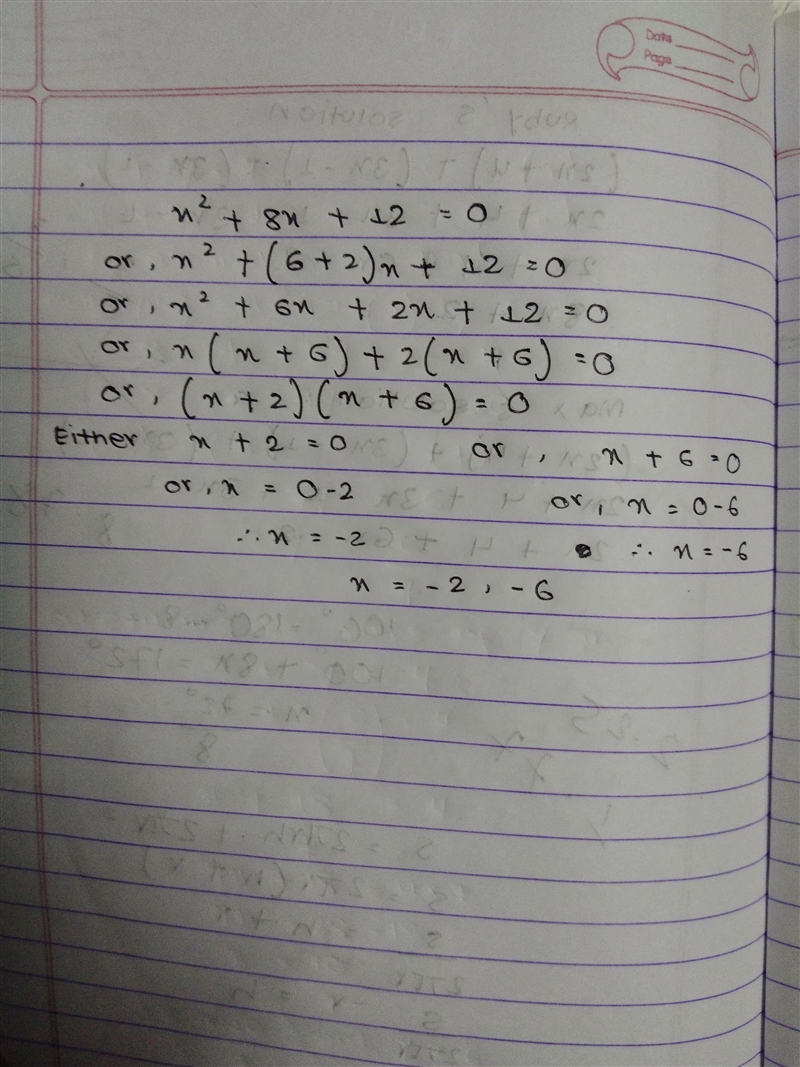 Date
Page
x² + 8x + 12 = 0
or, x² + (6+2)x + 12 = 0
or, x² + 6x + 2x + 12 = 0
or, x(x + 6) + 2(x + 6) = 0
or, (x + 2)(x + 6) = 0
Either x + 2 = 0 or, x + 6 = 0
or, x = 0-2 or, x = 0-6
∴ x = -2 ∴ x = -6
x = -2, -6